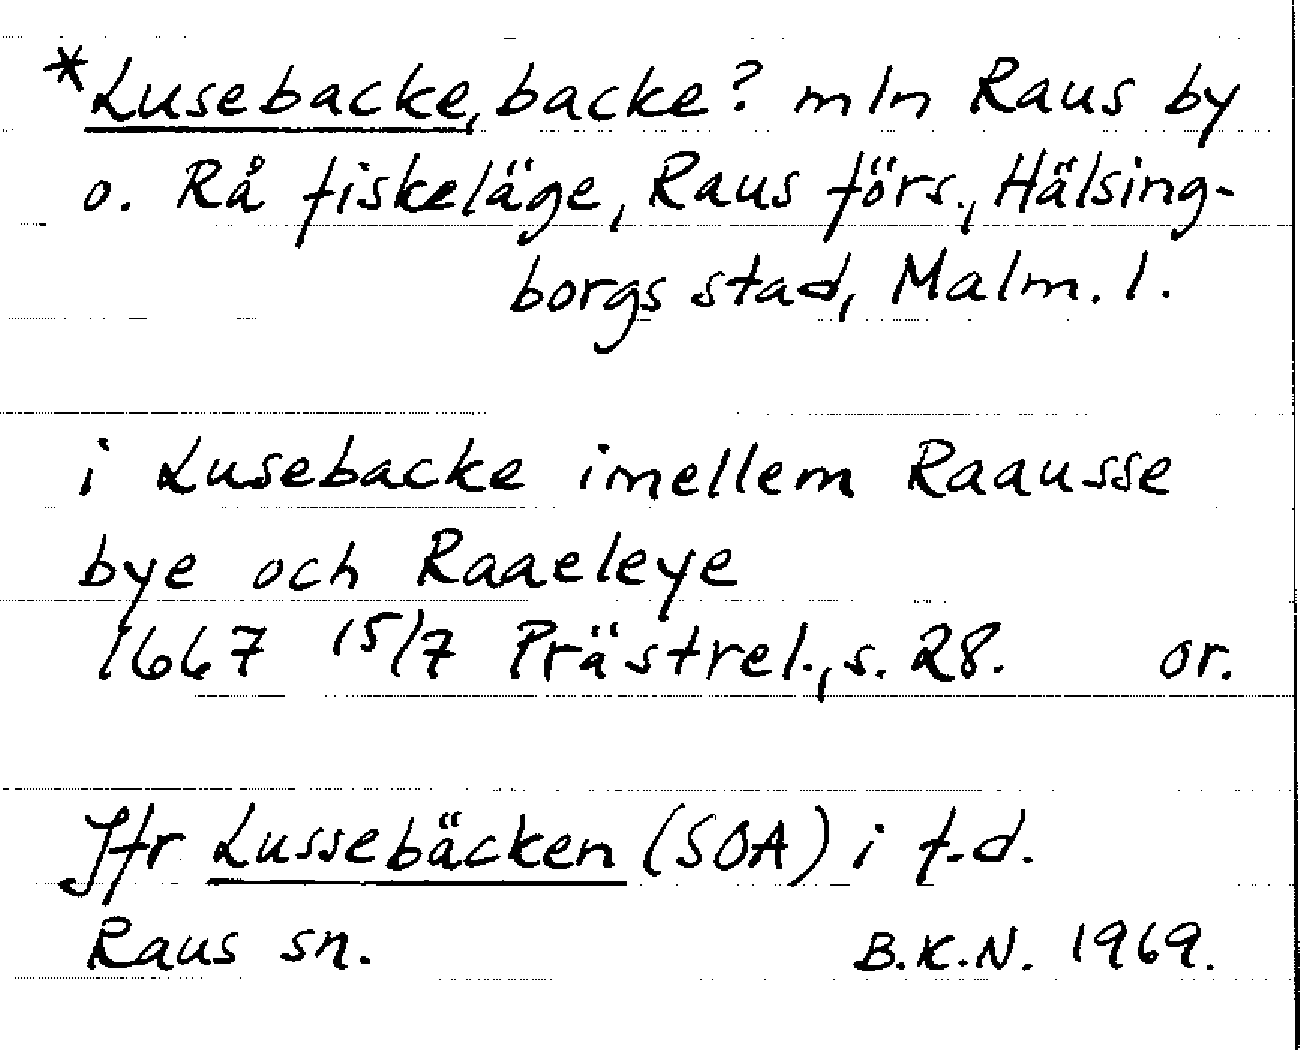 *Lusebacke, backe? mln Raus by
o. Rå fiskeläge, Raus förs., Hälsing-
borgs stad, Malm. l.
i Lusebacke imellem Raausse
bye och Raaeleye
1667 15/7 Prästrel., s. 28. or.
Jfr Lussebäcken (SOA) i f.d.
Raus sn. B.K.N. 1969.